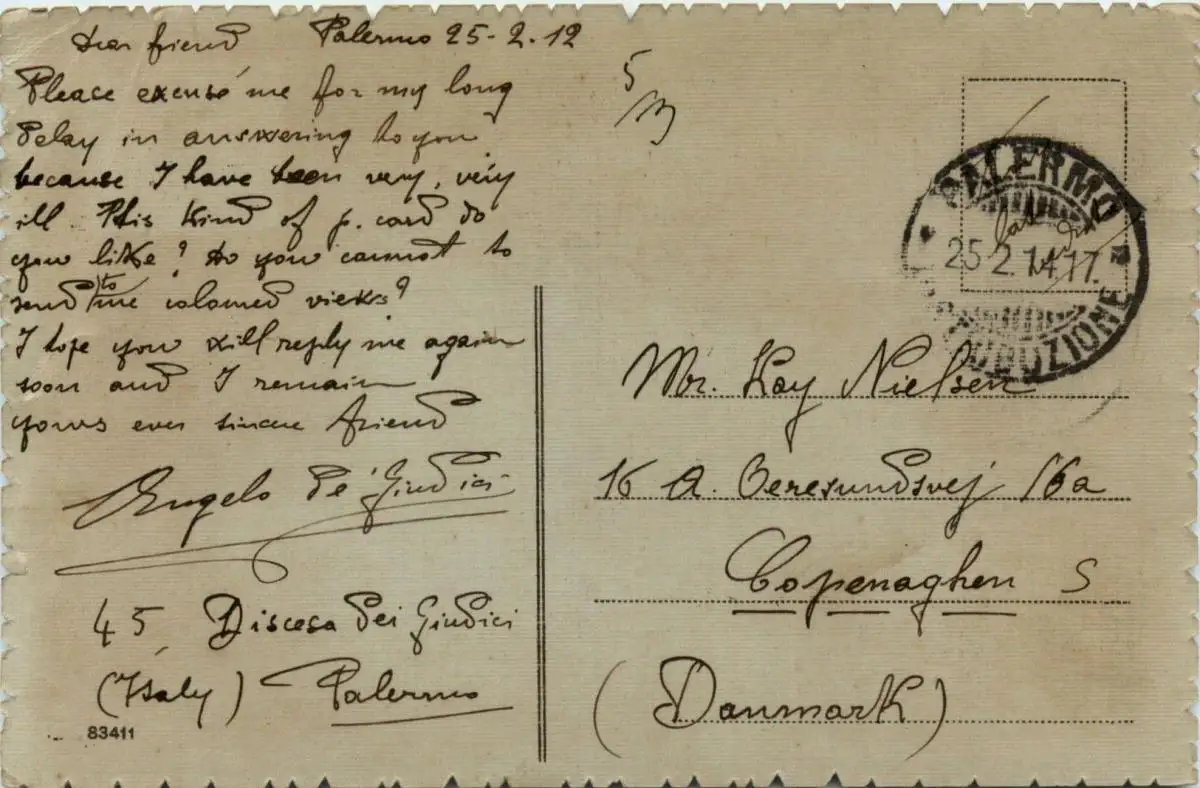 Dear friend Palermo 25-2.12
Please excuse me for my long
delay in answering to you
because I have been very, very
ill. This kind of p. card do
you like? Do you cannot to
send to me coloured views?
I hope you will reply me again
soon and I remain
yours ever sincere friend
Angelo de' Giudici
45 Discesa dei Giudici
(Italy) Palermo
83411
5/3
PALERMO
25.2.14.17.
Mr. Kay Nielsen
16 A. Oeresundsvej 16a
Copenaghen S
(Danmark)